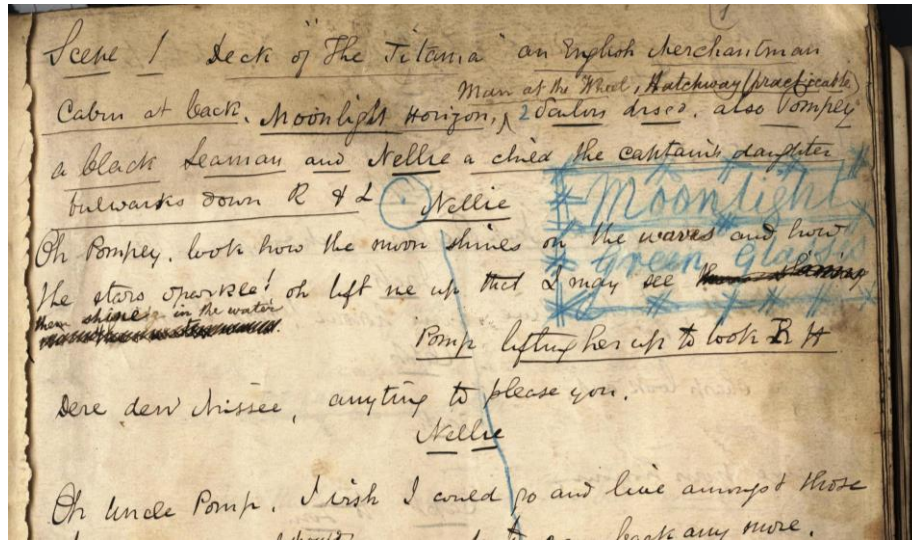 1
Scene 1 Deck of "The Titania" an English Merchantman
Man at the Wheel, Hatchway (practicable)
Cabin at back, Moonlight Horizon, 2 Sailors disco. also Pompey
a black Seaman and Nellie a child the captains daughter
bulwarks down R & L
Moonlight
Nellie
Oh Pompey, look how the moon shines on the waves and how
Green Glasses
the stars sparkle! oh lift me up that I may see
them shine in the water
Pomp lifting her up to look R H
Dere den Missee, anyting to please you.
Nellie
Oh Uncle Pomp, I wish I could go and live amongst those
back any more.